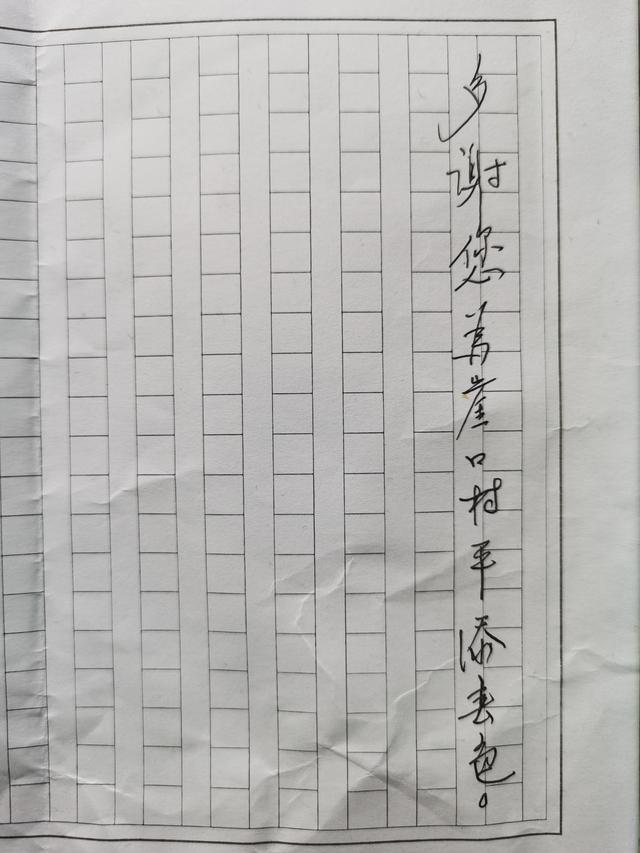 多谢您为崖口村平添春色。